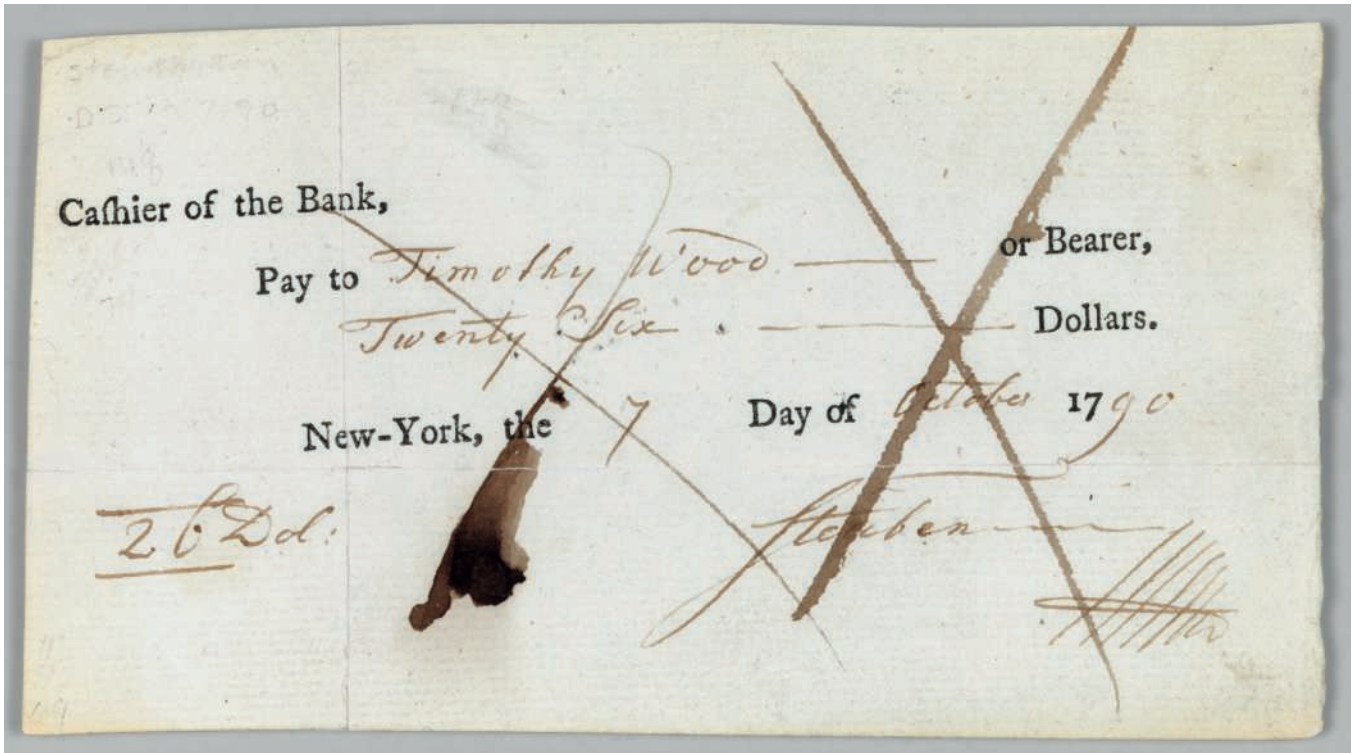 Caſhier of the Bank,
Pay to Timothy Wood or Bearer,
Twenty Six Dollars.
New-York, the 7 Day of October 1790
26 Dol:
Steuben